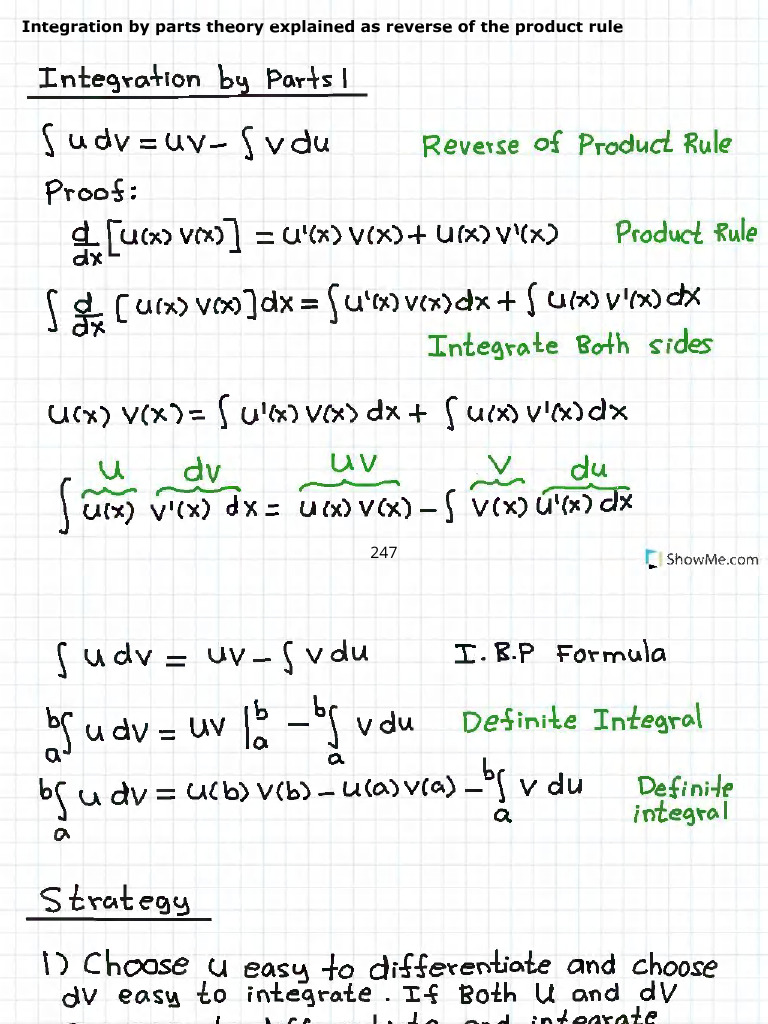 Integration by parts theory explained as reverse of the product rule
Integration by Parts 1
∫ u dv = uv - ∫ v du    Reverse of Product Rule
Proof:
d/dx [u(x) v(x)] = u'(x) v(x) + u(x) v'(x)    Product Rule
∫ d/dx [u(x) v(x)] dx = ∫ u'(x) v(x) dx + ∫ u(x) v'(x) dx
Integrate Both sides
u(x) v(x) = ∫ u'(x) v(x) dx + ∫ u(x) v'(x) dx
u    dv    uv    v    du
∫ u(x) v'(x) dx = u(x) v(x) - ∫ v(x) u'(x) dx
247
ShowMe.com
∫ u dv = uv - ∫ v du    I.B.P Formula
b∫a u dv = uv |b a - b∫a v du    Definite Integral
b∫a u dv = u(b) v(b) - u(a) v(a) - b∫a v du    Definite integral
Strategy
1) Choose u easy to differentiate and choose
dv easy to integrate. If Both u and dv
and integrate